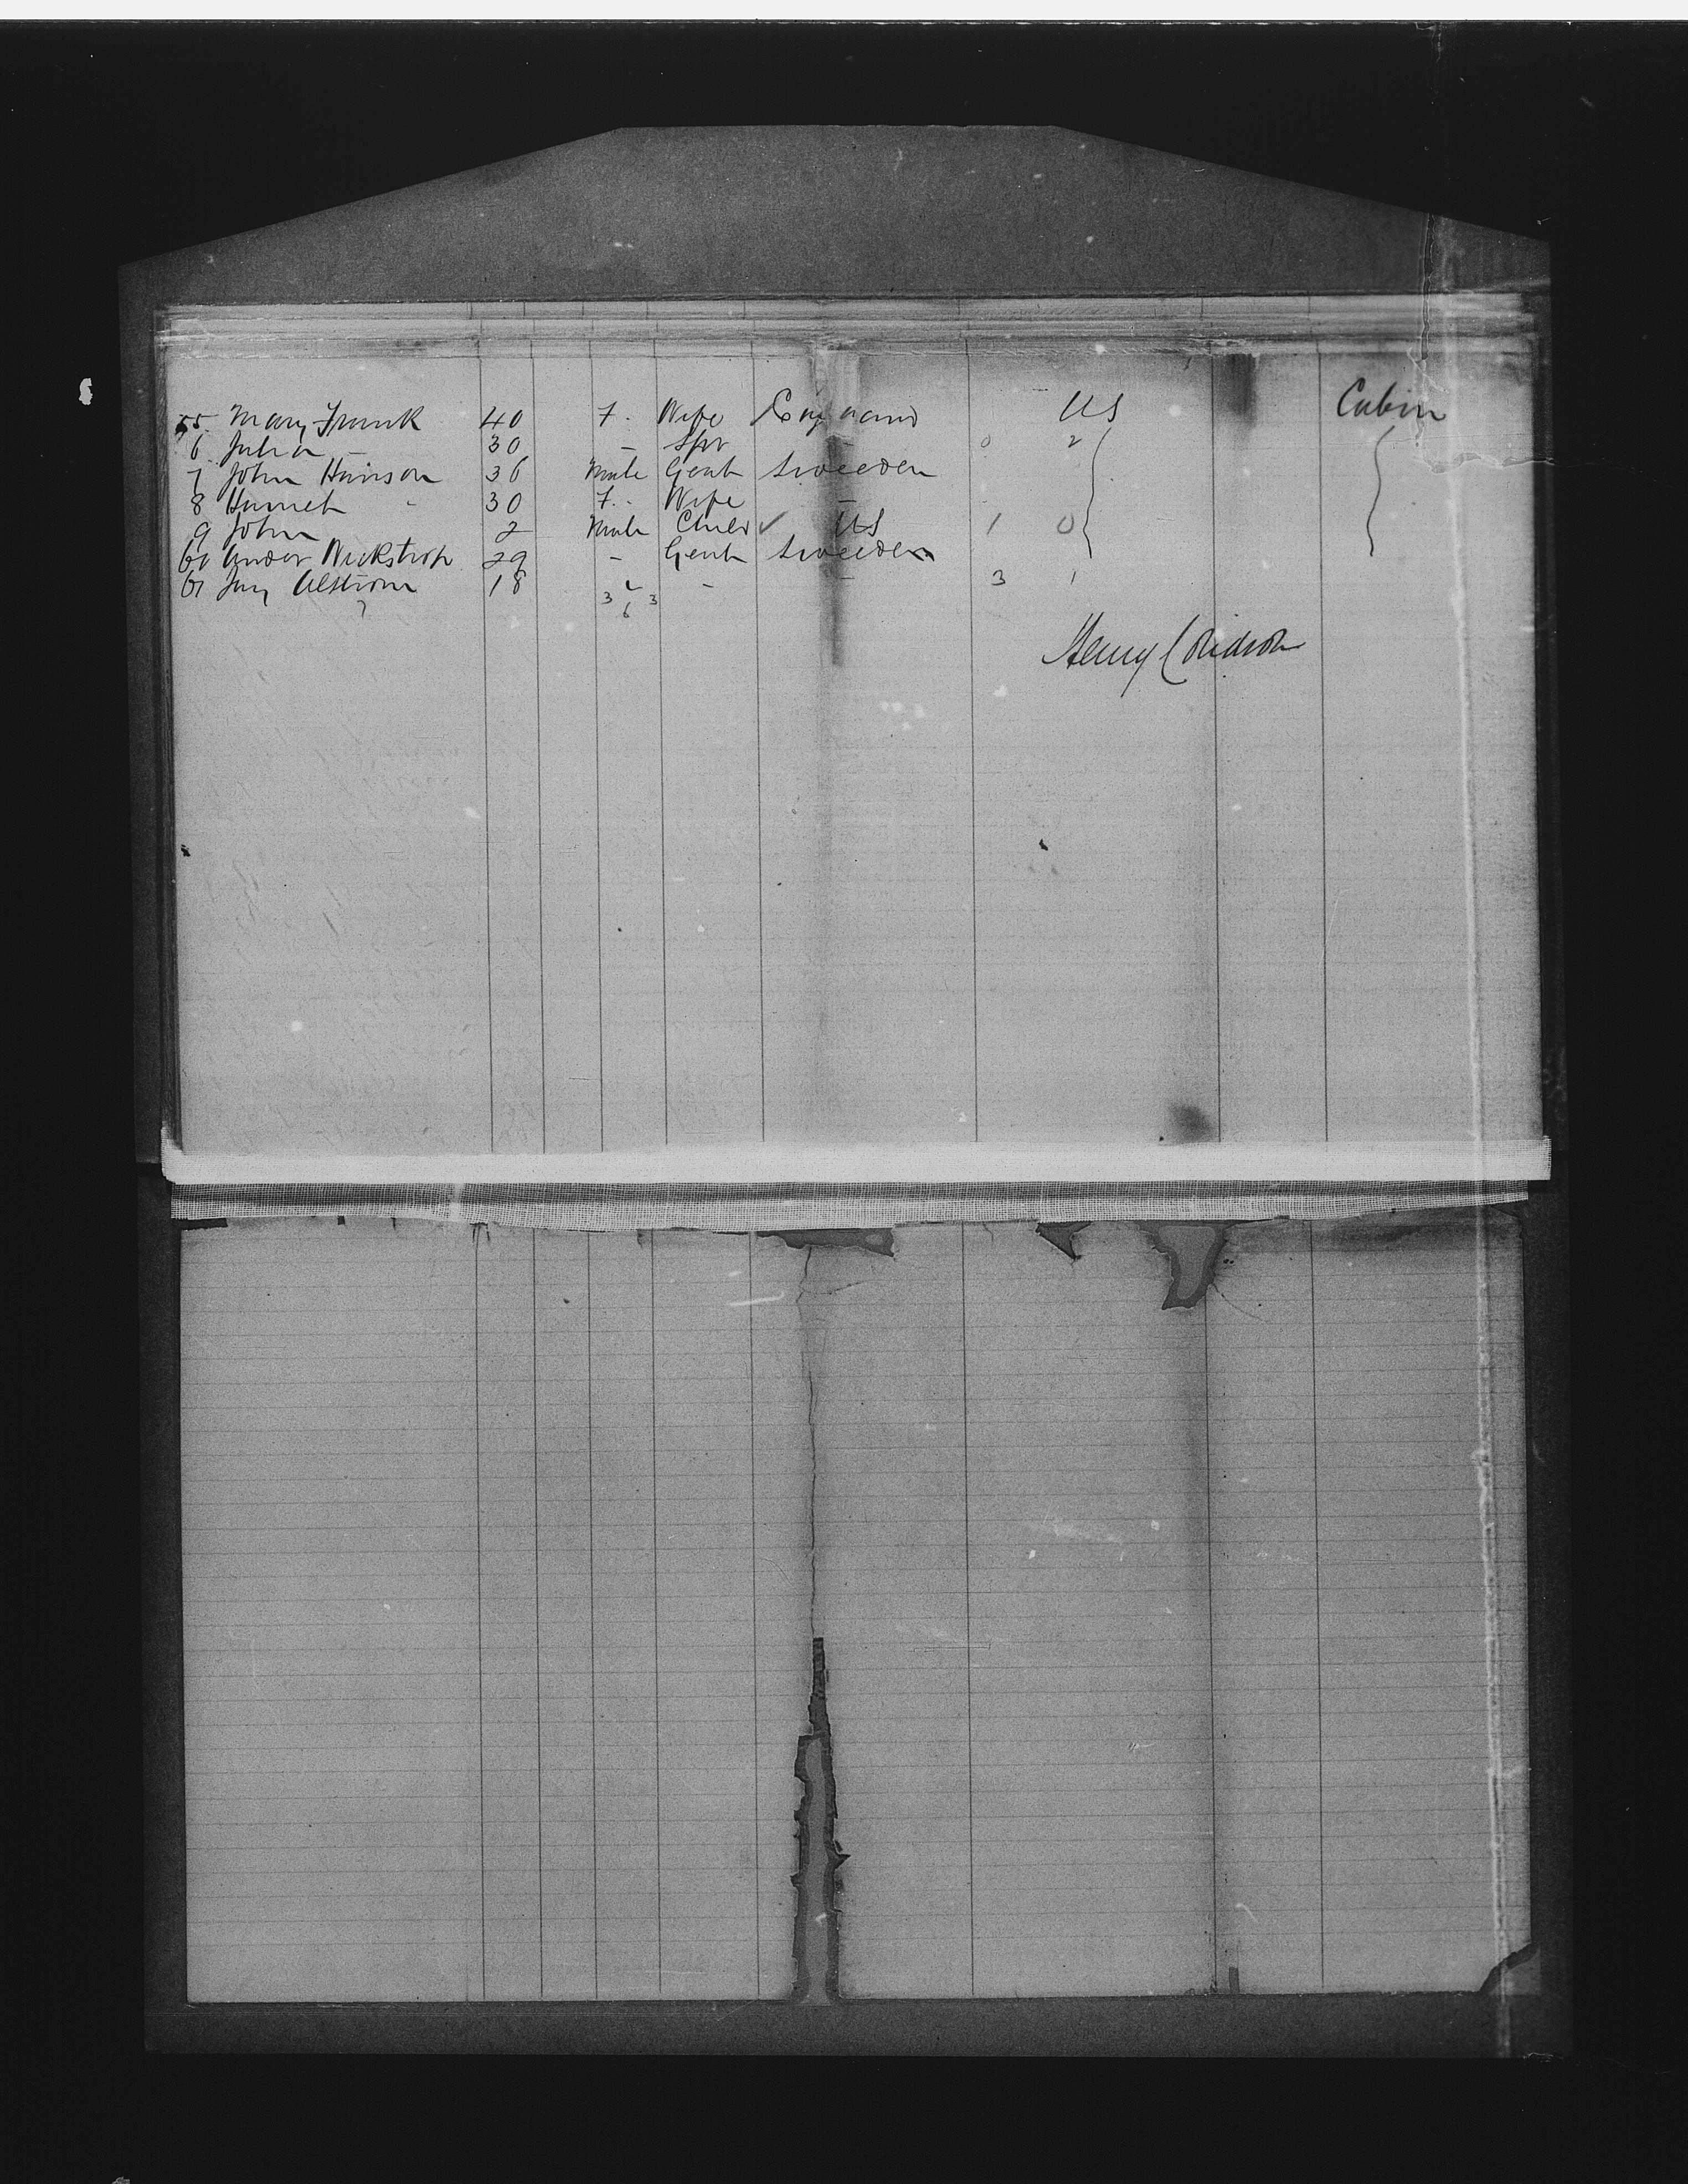 55 Mary Frank 40 F. Wife England US Cabin
6 Julia - 30 - Spr - 0 2
7 John Hanson 36 Male Gent Sweeden
8 Harriet - 30 F. Wife -
9 John 2 Male Child ✓ US 1 0
60 Ander Wickstrom 29 - Gent Sweeden
61 18 - - - 3 1
3 3
7 6
Henry